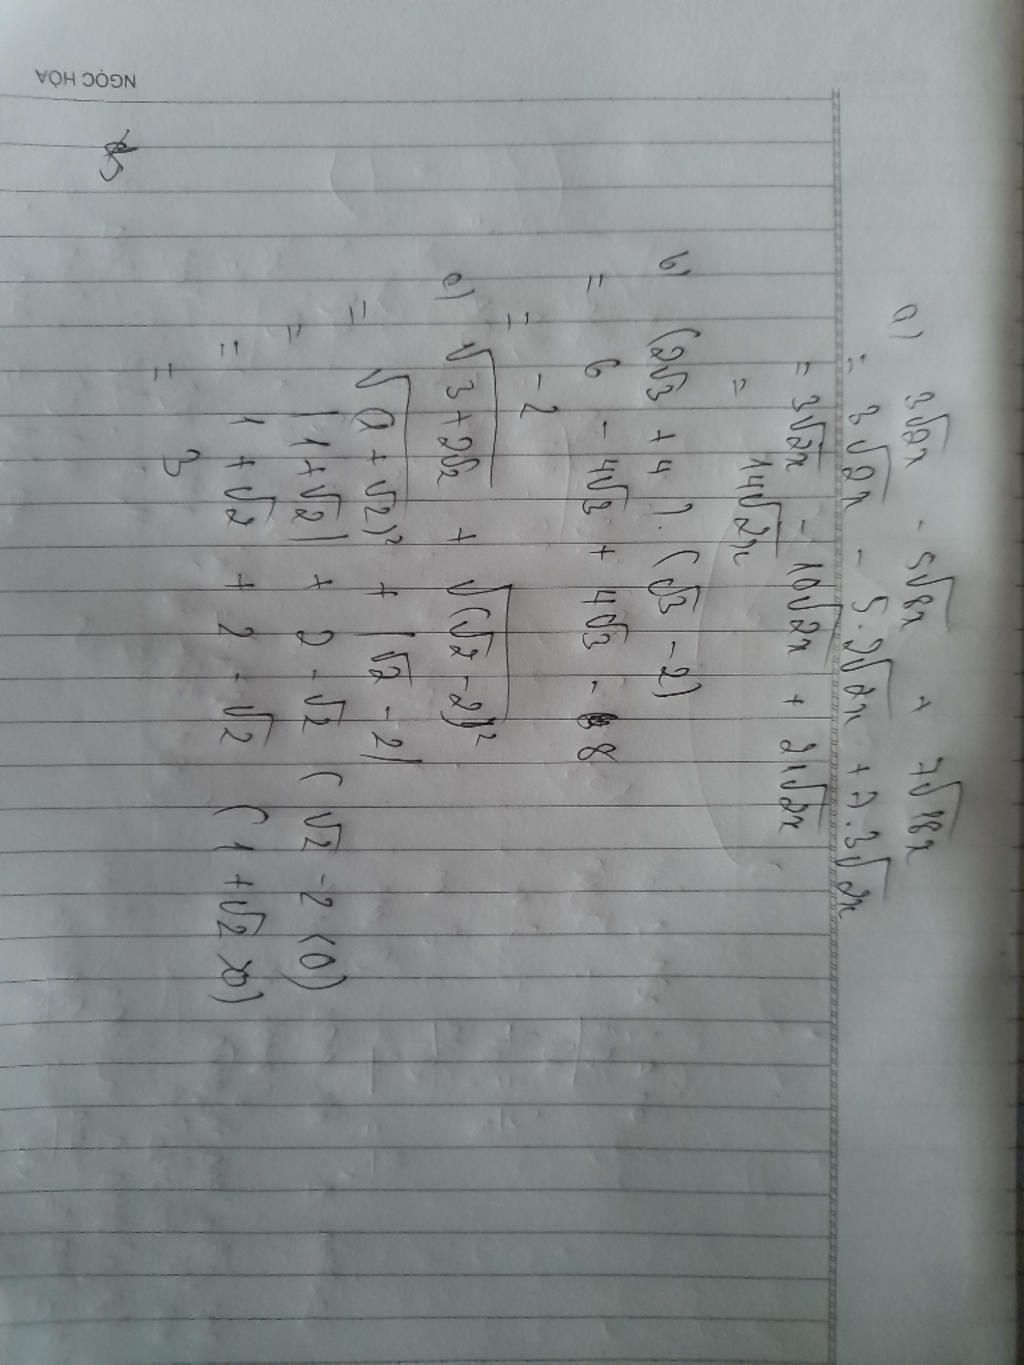 a) 3√2x - 5√8x + 7√18x
= 3√2x - 5.2√2x + 7.3√2x
= 3√2x - 10√2x + 21√2x
= 14√2x
b) (2√3 + 4).(√3 - 2)
= 6 - 4√3 + 4√3 - 8
= -2
c) √3+2√2 + √(√2-2)²
= √(1+√2)² + |√2 - 2|
= |1+√2| + 2-√2 (√2 -2 <0)
= 1+√2 + 2-√2 (1+√2 >0)
= 3
NGỌC HÒA